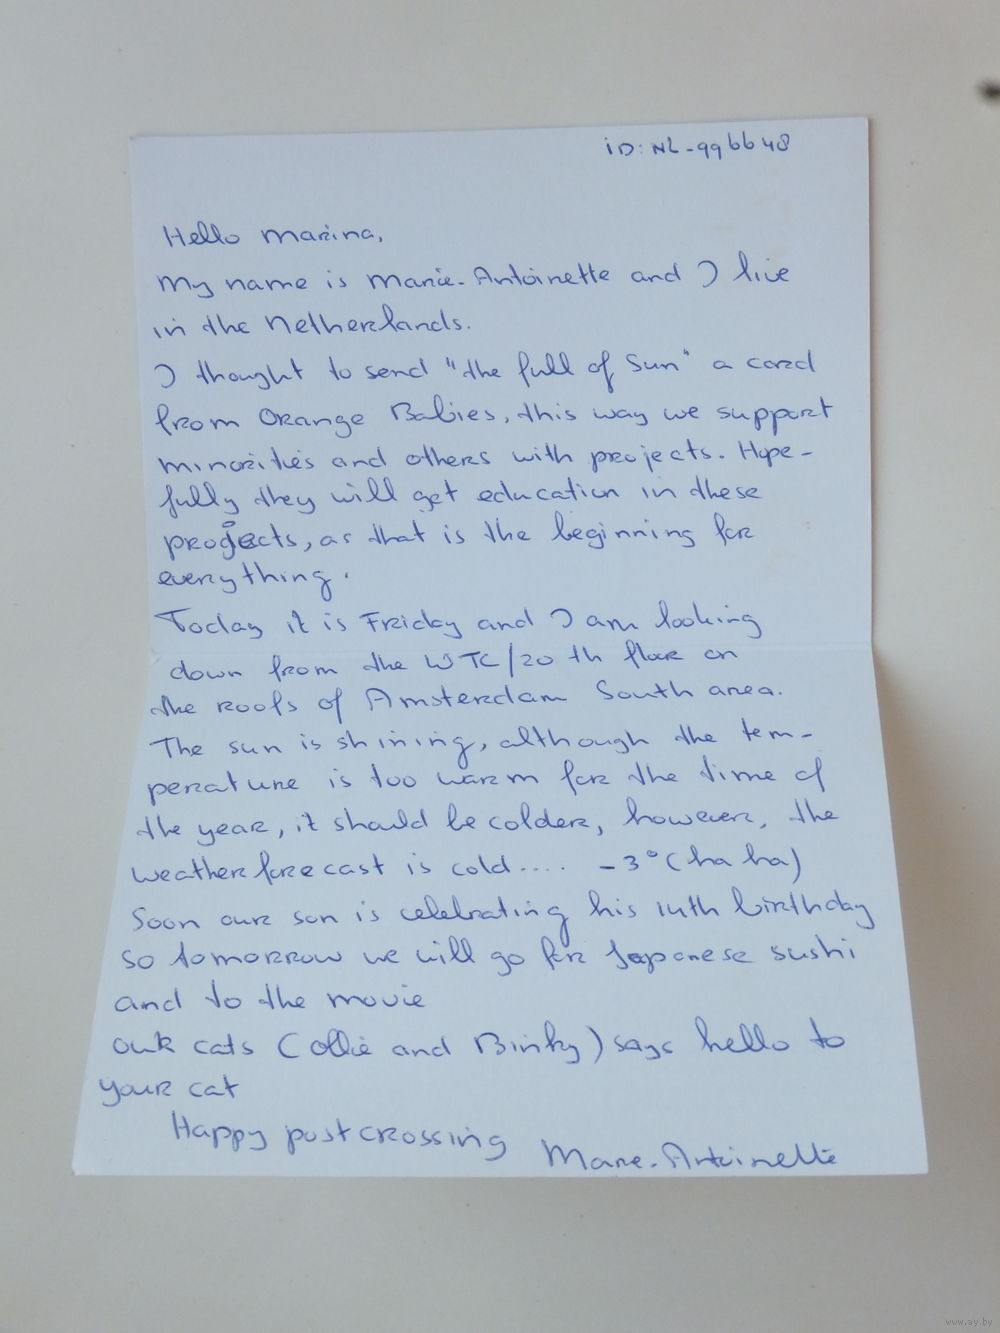 ID: NL-996648
Hello Marina,
My name is Marie-Antoinette and I live
in the Netherlands.
I thought to send "the full of Sun" a card
from Orange Babies, this way we support
minorities and others with projects. Hope-
fully they will get education in these
projects, as that is the beginning for
everything.
Today it is Friday and I am looking
down from the WTC/20 th floor on
the roofs of Amsterdam South area.
The sun is shining, although the tem-
perature is too warm for the time of
the year, it should be colder, however, the
weatherforecast is cold.... -3° (ha ha)
Soon our son is celebrating his 14th birthday
so tomorrow we will go for Japanese sushi
and to the movie
our cats (Ollie and Binky) says hello to
your cat
Happy postcrossing
Marie-Antoinette
www.ay.by